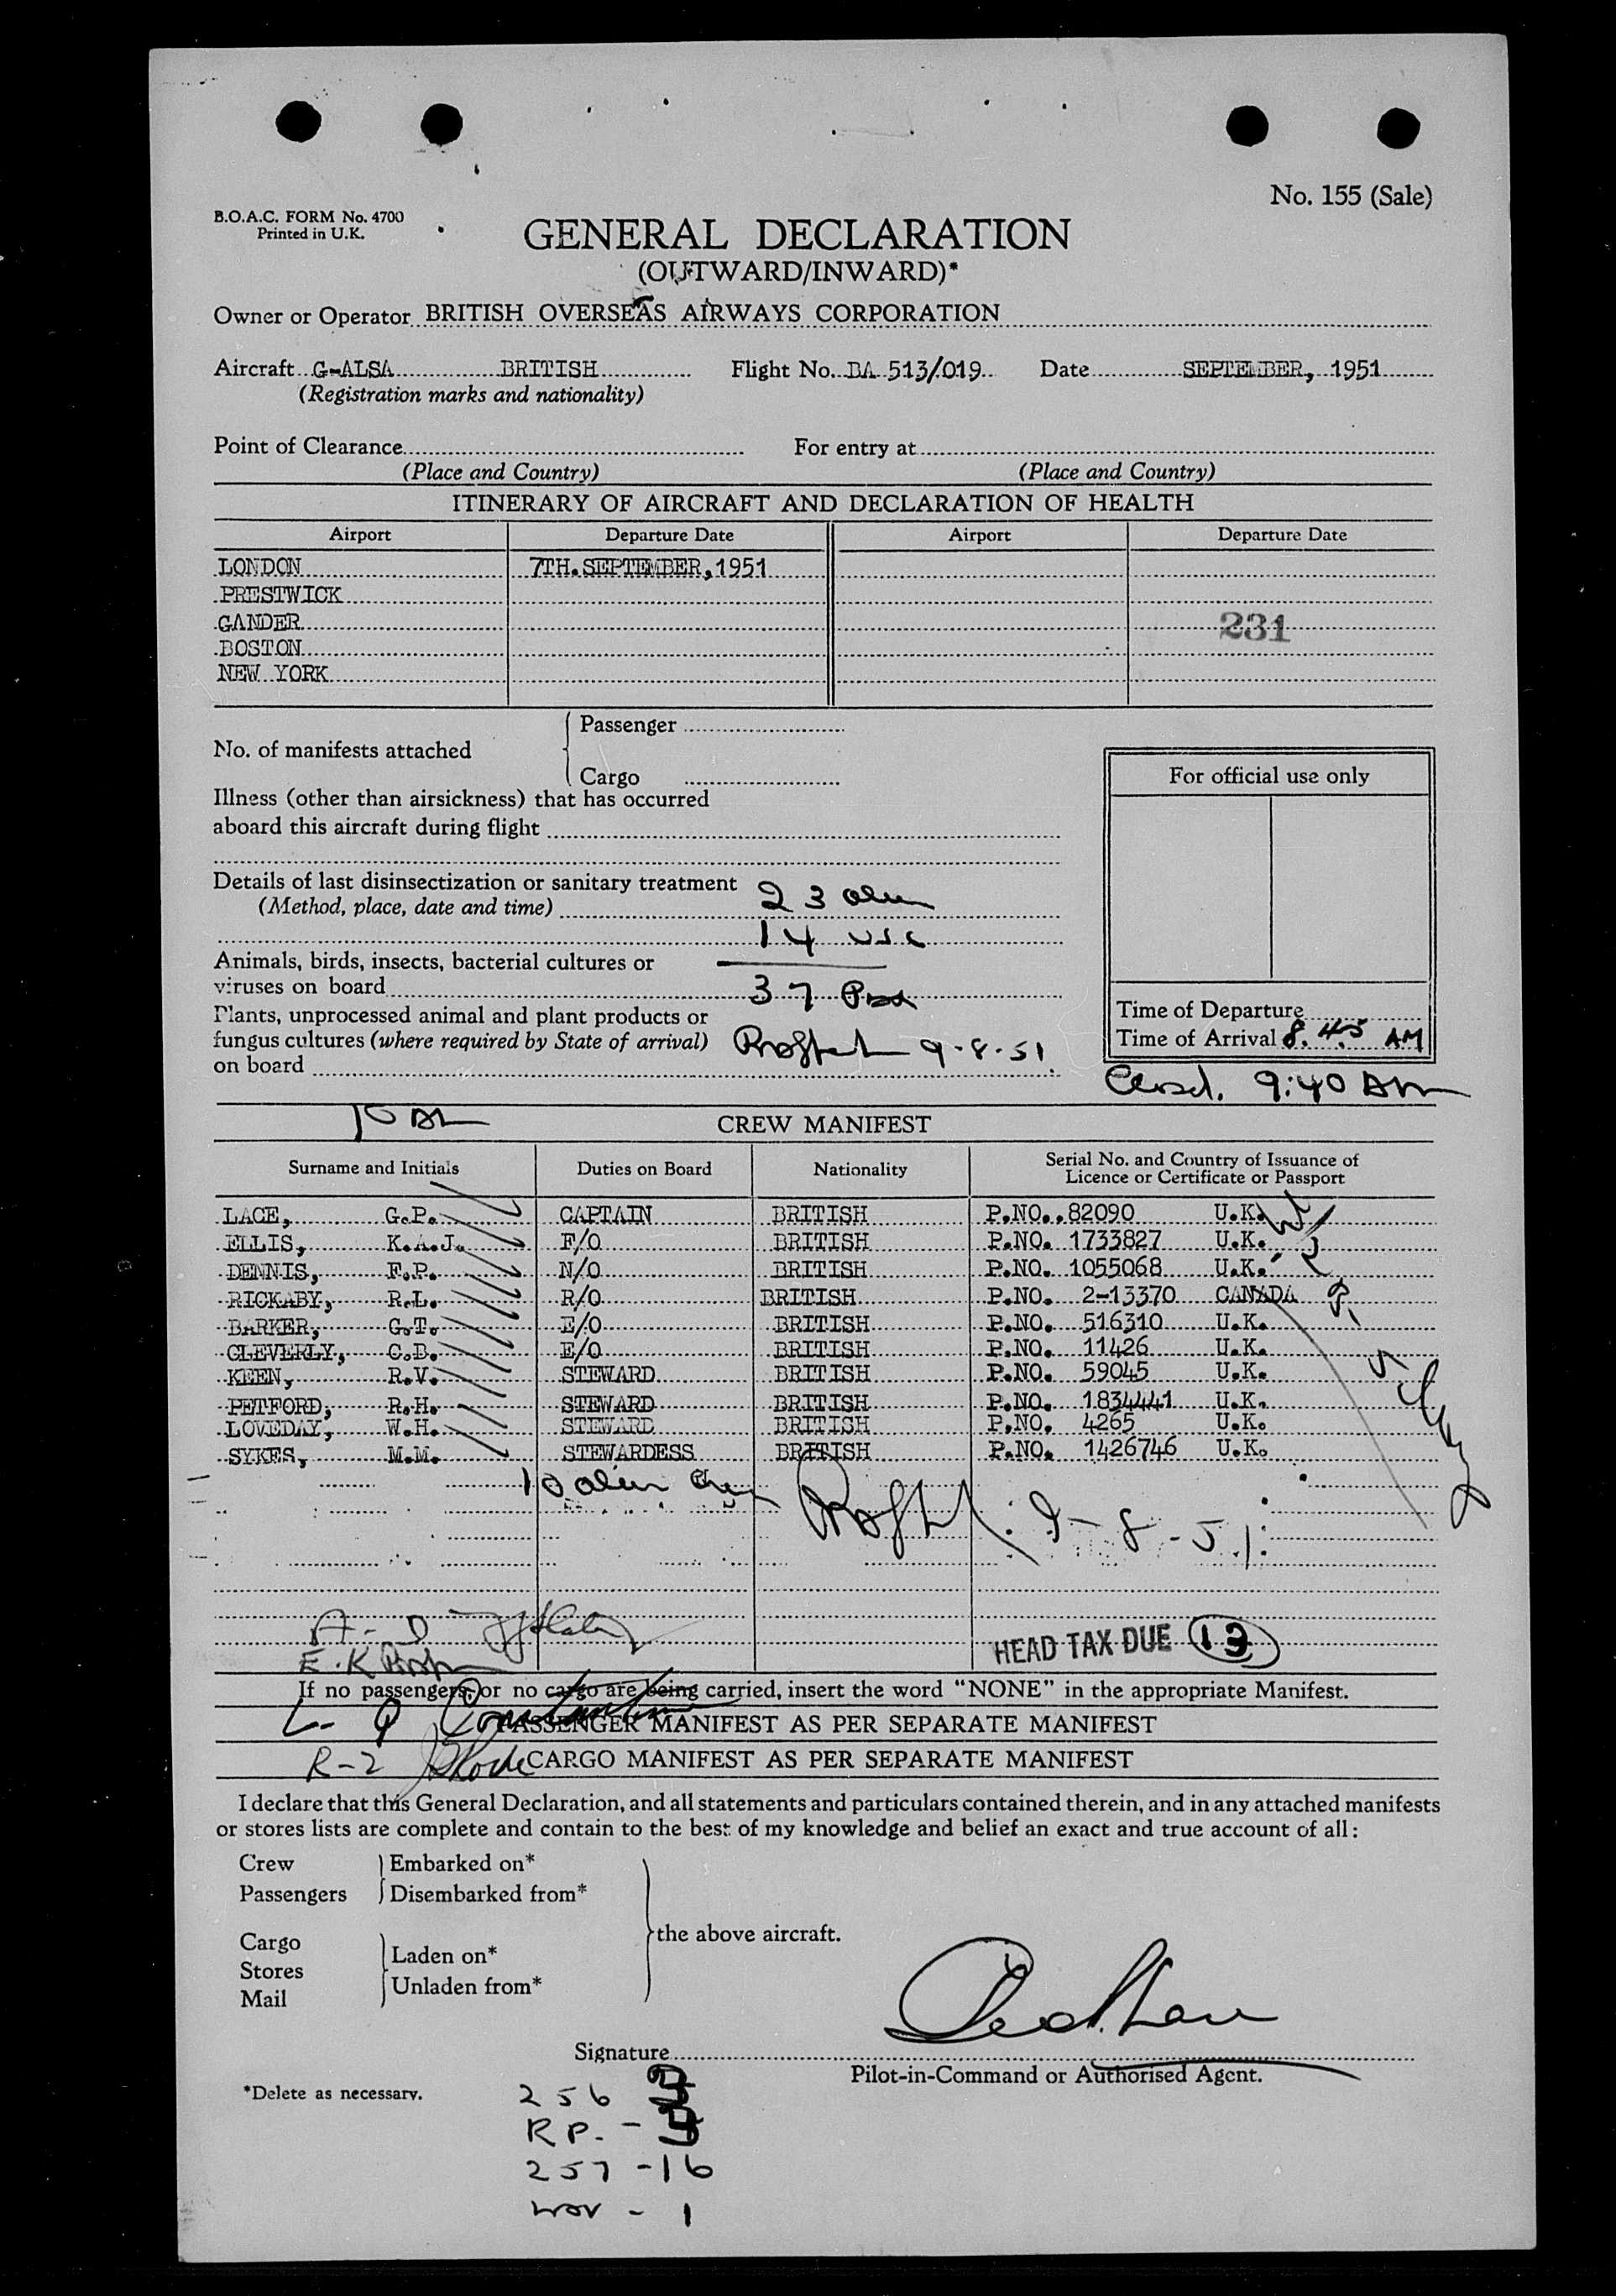 No. 155 (Sale)
B.O.A.C. FORM No. 4700
Printed in U.K.
GENERAL DECLARATION
(OUTWARD/INWARD)*
Owner or Operator BRITISH OVERSEAS AIRWAYS CORPORATION
Aircraft G-ALSA BRITISH Flight No. BA 513/019 Date SEPTEMBER, 1951
(Registration marks and nationality)
Point of Clearance For entry at
(Place and Country) (Place and Country)
ITINERARY OF AIRCRAFT AND DECLARATION OF HEALTH
Airport Departure Date Airport Departure Date
LONDON 7TH.SEPTEMBER,1951
PRESTWICK
GANDER 231
BOSTON
NEW YORK
Passenger
No. of manifests attached
Cargo
For official use only
Illness (other than airsickness) that has occurred
aboard this aircraft during flight
Details of last disinsectization or sanitary treatment
(Method, place, date and time) 23
14 USC
Animals, birds, insects, bacterial cultures or
viruses on board 37
Plants, unprocessed animal and plant products or
fungus cultures (where required by State of arrival) 9-8-51
on board
Time of Departure
Time of Arrival 8.45 AM
9:40 AM
CREW MANIFEST
Surname and Initials Duties on Board Nationality Serial No. and Country of Issuance of
Licence or Certificate or Passport
LACE, G.P. CAPTAIN BRITISH P.NO. 82090 U.K.
ELLIS, K.A.J. F/O BRITISH P.NO. 1733827 U.K.
DENNIS, F.P. N/O BRITISH P.NO. 1055068 U.K.
RICKABY, R.L. R/O BRITISH P.NO. 2-13370 CANADA
BARKER, G.T. E/O BRITISH P.NO. 516310 U.K.
CLEVERLY, C.B. E/O BRITISH P.NO. 11426 U.K.
KEEN, R.V. STEWARD BRITISH P.NO. 59045 U.K.
PETFORD, R.H. STEWARD BRITISH P.NO. 1834441 U.K.
LOVEDAY, W.H. STEWARD BRITISH P.NO. 4265 U.K.
SYKES, M.M. STEWARDESS BRITISH P.NO. 1426746 U.K.
10
9-8-51
HEAD TAX DUE 13
If no passengers, or no cargo are being carried, insert the word "NONE" in the appropriate Manifest.
PASSENGER MANIFEST AS PER SEPARATE MANIFEST
R-2 CARGO MANIFEST AS PER SEPARATE MANIFEST
I declare that this General Declaration, and all statements and particulars contained therein, and in any attached manifests
or stores lists are complete and contain to the best of my knowledge and belief an exact and true account of all:
Crew Embarked on*
Passengers Disembarked from*
the above aircraft.
Cargo
Laden on*
Stores
Unladen from*
Mail
Signature
Pilot-in-Command or Authorised Agent.
*Delete as necessary.
256
RP. -
257 - 16
- 1